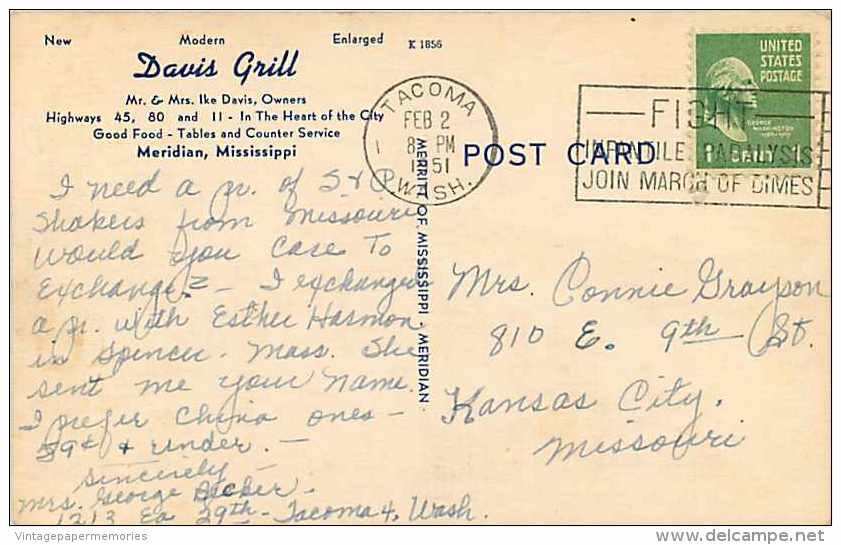 New Modern Enlarged K 1856
Davis Grill
Mr. & Mrs. Ike Davis, Owners
Highways 45, 80 and 11 - In The Heart of the City
Good Food - Tables and Counter Service
Meridian, Mississippi
TACOMA
FEB 2
8 PM
1951
WASH.
POST CARD
MERRITT OF MISSISSIPPI - MERIDIAN
FIGHT
INFANTILE PARALYSIS
JOIN MARCH OF DIMES
UNITED
STATES
POSTAGE
GEORGE
WASHINGTON
I need a pr. of S & P
Shakers from Missouri
Would you care to
Exchange? - I exchanged
a pr. with Esther Harmon
in Spencer, Mass. She
sent me your name.
I prefer China ones -
39¢ & under. -
Sincerely -
Mrs. George
1213 Ea 29th - Tacoma 4, Wash.
Mrs. Connie Grayson
810 E. 9th St.
Kansas City,
Missouri
Vintagepapermemories
delcampe.net